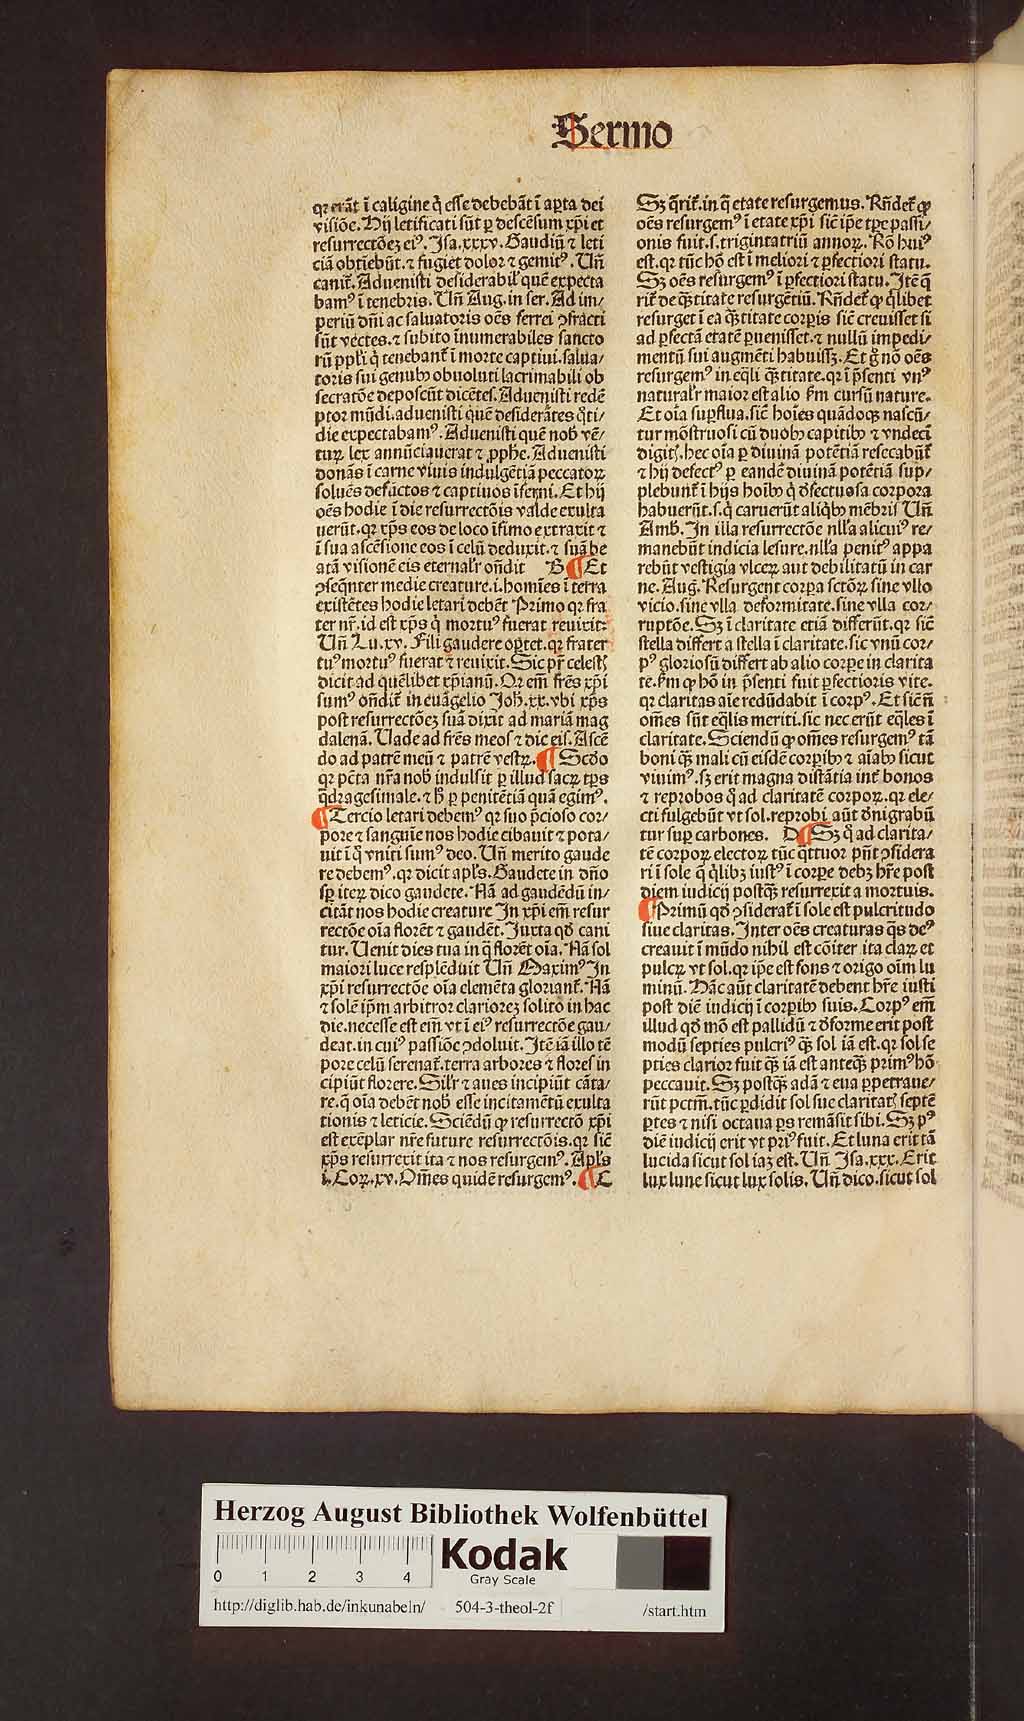 Sermo
qꝛ erāt ī caligine q̇ esse debebāt ī aꝑta dei
visiōe. Hij letificati sūt ꝑ descēsum xp̄i et
resurrectōeꝫ eiꝰ. Jsa.xxxv. Gaudiū ⁊ leti
ciā obtīebūt.⁊ fugiet dolor ⁊ gemitꝰ. Un̄
canit̄. Aduenisti desiderabil̓ quē expecta
bamꝰ ī tenebris. Un̄ Aug. in ser. Ad im⸗
periū dn̄i ac saluatoris oēs ferrei ꝯfracti
sūt vectes.⁊ subito īnumerabiles sancto
rū ppl̓i q̇ tenebant̄ ī morte captiui.salua⸗
toris sui genubꝰ obuoluti lacrimabili ob
secratōe deposcūt dicētes. Aduenisti redē
ptor mūdi.aduenisti quē desiderātes q̊ti⸗
die expectabamꝰ. Aduenisti quē nob̓ vē⸗
turꝝ lex annūciauerat ⁊ ꝓphe. Aduenisti
donās ī carne viuis indulgētiā peccatoꝝ
soluēs defūctos ⁊ captiuos īferni. Et hij
oēs hodie ī die resurrectōis valde exulta
uerūt.qꝛ xp̄s eos de loco īfimo extraxit ⁊
ī sua ascēsione eos ī celū deduxit.⁊ suā be
atā visionē eis eternal̓r on̄dit B ¶ Et
ꝯseq̄nter medie creature.i.homīes ī terra
existētes hodie letari debēt Primo qꝛ fra
ter nr̄.id est xp̄s q̇ mortuꝰ fuerat reuixit:
Un̄ Lu.xv. Fili gaudere oꝑtet.qꝛ frater
tuꝰ mortuꝰ fuerat ⁊ reuixit. Sic pr̄ celestꝭ
dicit ad quēlibet xp̄ianū. Qꝛ em̄ fr̄es xp̄i
sumꝰ on̄dit̄ in euāgelio Joh̄.xx.vbi xp̄s
post resurrectōeꝫ suā dixit ad mariā mag
dalenā. Uade ad fr̄es meos ⁊ dic eis. Ascē
do ad patrē meū ⁊ patrē vestꝝ. ¶ Scd̓o
qꝛ pctā nr̄a nob̓ indulsit ꝑ illud sacꝝ tp̄s
q̄dragesimale.⁊ h̓ ꝑ penitētiā quā egimꝰ.
¶ Tercio letari debemꝰ qꝛ suo p̄cioso cor⸗
pore ⁊ sanguīe nos hodie cibauit ⁊ pota⸗
uit ī q̇ vniti sumꝰ deo. Un̄ merito gaude
re debemꝰ.qꝛ dicit apl̓s. Gaudete in dn̄o
sꝑ iteꝝ dico gaudete. Nā ad gaudēdū in⸗
citāt nos hodie creature Jn xp̄i em̄ resur
rectōe oīa florēt ⁊ gaudēt. Juxta qd̓ cani
tur. Uenit dies tua in q̄ florēt oīa. Nā sol
maiori luce resplēduit Un̄ Maximꝰ Jn
xp̄i resurrectōe oīa elemēta gloriant̄. Nā
⁊ solē ip̄m arbitror clarioreꝫ solito in hac
die.necesse est em̄ vt ī eiꝰ resurrectōe gau⸗
deat.in cuiꝰ passiōe ꝯdoluit. Jtē iā illo tē
pore celū serenat̄.terra arbores ⁊ flores in
cipiūt florere. Sil̓r ⁊ aues incipiūt cāta⸗
re.q̄ oīa debēt nob̓ esse incitamētū exulta
tionis ⁊ leticie. Sciēdū ꝙ resurrectō xp̄i
est exēplar nr̄e future resurrectōis.qꝛ sic̄
xp̄s resurrexit ita ⁊ nos resurgemꝰ. Apl̓s
i.Coꝝ.xv. Om̄es quidē resurgemꝰ. ¶ C
Sꝫ q̄rit̄.in q̄ etate resurgemus. Rn̄det̄ ꝙ
oēs resurgemꝰ ī etate xp̄i sic̄ ip̄e tꝑe passi⸗
onis fuit.s.trigintatriū annoꝝ. Rō huiꝰ
est.qꝛ tūc hō est ī meliori ⁊ ꝑfectiori statu.
Sꝫ oēs resurgemꝰ ī ꝑfectiori statu. Jtē q̄
rit̄ de q̄ꝫtitate resurgētiū. Rn̄det̄ ꝙ q̄libet
resurget ī ea q̄ꝫtitate corꝑis sic̄ creuisset si
ad ꝑfectā etatē ꝑuenisset.⁊ nullū impedi⸗
mentū sui augmēti habuissꝫ. Et g̊ nō oēs
resurgemꝰ in eq̄li q̄ꝫtitate.qꝛ ī p̄senti vnꝰ
natural̓r maior est alio ẜm cursū nature.
Et oīa suꝑflua.sic̄ hoīes quādoqꝫ nascū⸗
tur mōstruosi cū duobꝰ capitibꝰ ⁊ vndecī
digitꝭ.hec oīa ꝑ diuinā potētiā resecabūt̄
⁊ hij defectꝰ ꝑ eandē diuinā potētiā sup⸗
plebunt̄ ī hijs hoībꝰ q̇ d̓fectuosa corpora
habuerūt.s.q̇ caruerūt aliq̇bꝰ mēbris Un̄
Amb. Jn illa resurrectōe nll̓a alicuiꝰ re⸗
manebūt indicia lesure.nll̓a penitꝰ appa
rebūt vestigia vlceꝝ aut debilitatū in car
ne. Aug. Resurgent corꝑa sctōꝝ sine vllo
vicio.sine vlla deformitate.sine vlla cor⸗
ruptōe. Sꝫ ī claritate etiā differūt.qꝛ sic̄
stella differt a stella ī claritate.sic vnū cor⸗
pꝰ gloriosū differt ab alio corꝑe in clarita
te.ẜm ꝙ hō in p̄senti fuit ꝑfectioris vite.
qꝛ claritas aīe redūdabit ī corpꝰ. Et sic̄ n̄
om̄es sūt eq̄lis meriti.sic nec erūt eq̄les ī
claritate. Sciendū ꝙ om̄es resurgemꝰ tā
boni q̄ꝫ mali cū eisdē corꝑibꝰ ⁊ aīabꝰ sicut
viuimꝰ.sꝫ erit magna distātia int̄ bonos
⁊ reprobos q̊ ad claritatē corpoꝝ.qꝛ ele⸗
cti fulgebūt vt sol.reprobi aūt d̓nigrabū
tur suꝑ carbones. D ¶ Sꝫ q̊ ad clarita⸗
tē corpoꝝ electoꝝ tūc q̄ttuor pn̄t ꝯsidera
ri ī sole q̄ q̄libꝫ iustꝰ ī corꝑe debꝫ hr̄e post
diem iudicij postq̄ꝫ resurrexit a mortuis.
¶ Primū qd̓ ꝯsiderat̄ ī sole est pulcritudo
siue claritas. Inter oēs creaturas q̄s deꝰ
creauit ī mūdo nihil est cōiter ita claꝝ et
pulcꝝ vt sol.qꝛ ip̄e est fons ⁊ origo oīm lu
minū. Hāc aūt claritatē debent hr̄e iusti
post diē iudicij ī corꝑibꝰ suis. Corpꝰ em̄
illud qd̓ mō est pallidū ⁊ d̓forme erit post
modū septies pulcriꝰ q̄ꝫ sol iā est.qꝛ sol se
pties clarior fuit q̄ꝫ iā est anteq̄ꝫ primꝰ hō
peccauit. Sꝫ postq̄ꝫ adā ⁊ eua ꝑpetraue⸗
rūt pctm̄.tūc ꝑdidit sol sue claritatꝭ septē
ꝑtes ⁊ nisi octaua ꝑs remāsit sibi. Sꝫ pꝰ
diē iudicij erit vt priꝰ fuit. Et luna erit tā
lucida sicut sol iaꝫ est. Un̄ Jsa.xxx. Erit
lux lune sicut lux solis. Un̄ dico.sicut sol
Herzog August Bibliothek Wolfenbüttel
0 1 2 3 4
Kodak
Gray Scale
http://diglib.hab.de/inkunabeln/ 504-3-theol-2f /start.htm